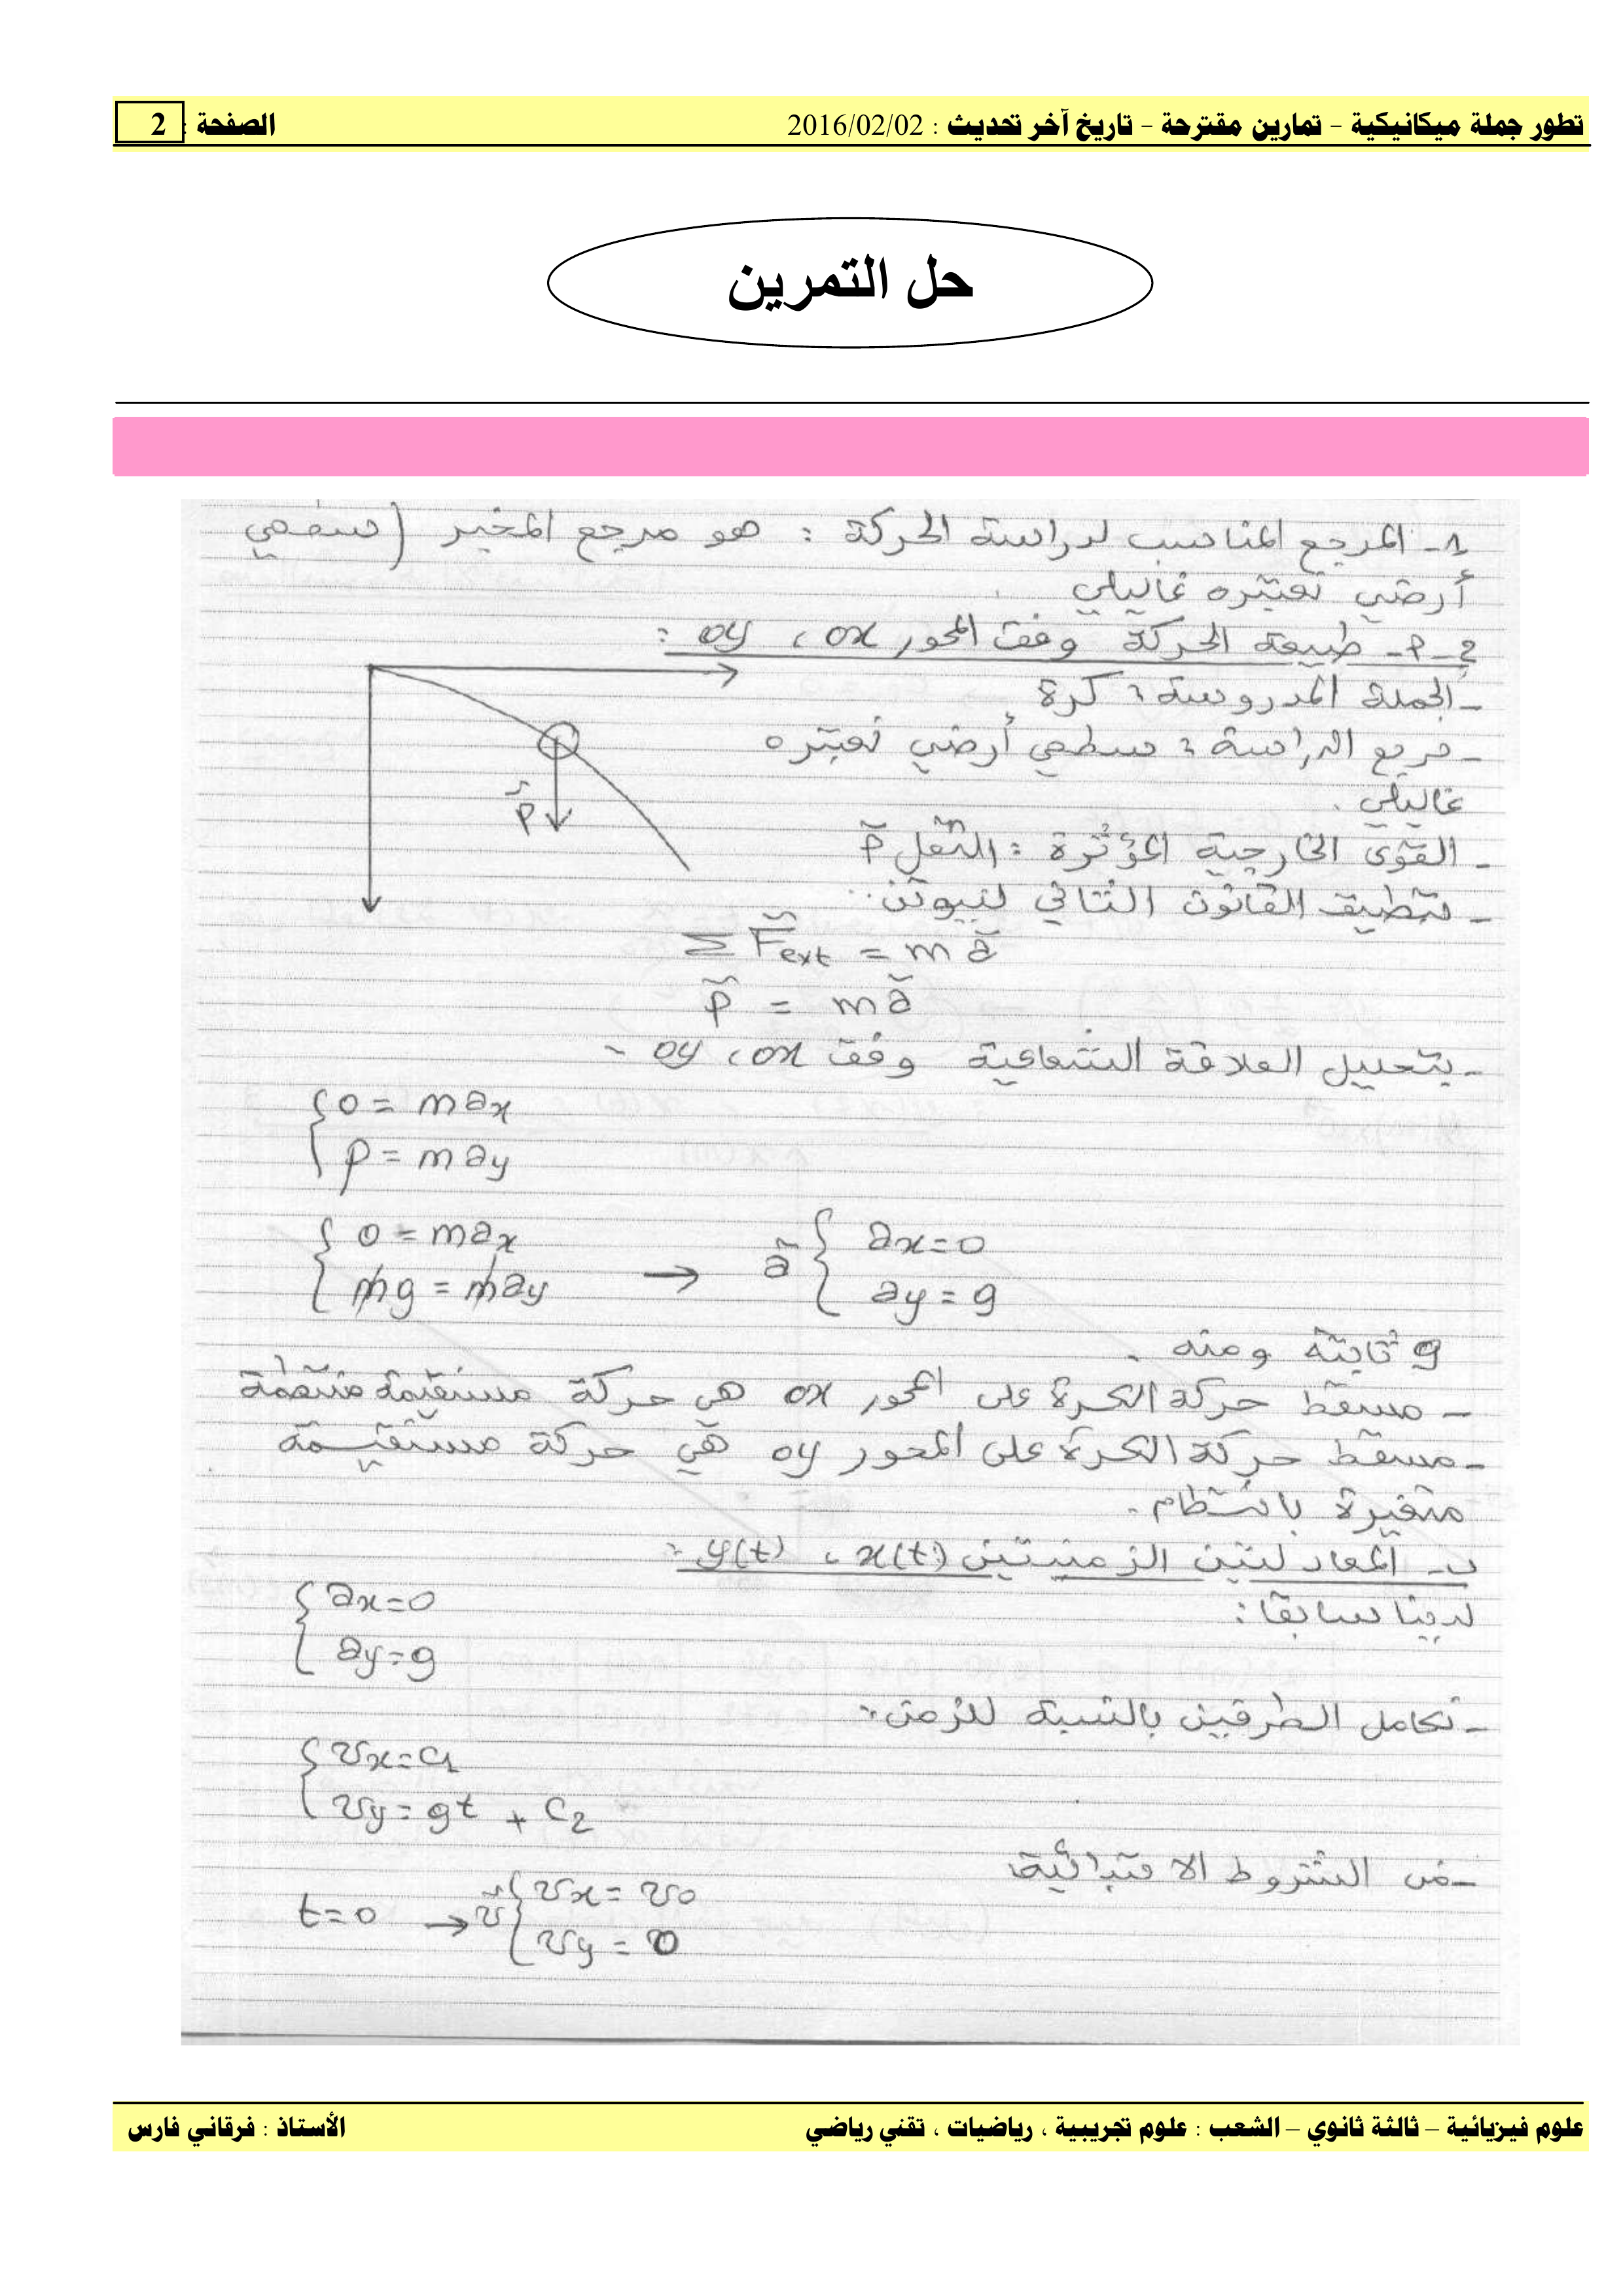 تطور جملة ميكانيكية - تمارين مقترحة - تاريخ آخر تحديث : 2016/02/02 الصفحة : 2
حل التمرين
1- المرجع المناسب لدراسة الحركة : هو مرجع المخبر (سطحي
أرضي نعتبره غاليلي
2-أ- طبيعة الحركة وفق المحور ox ، oy :
- الجملة المدروسة : كرة
- مرجع الدراسة : سطحي أرضي نعتبره
غاليلي .
- القوى الخارجية المؤثرة : الثقل P⃗
P⃗
- بتطبيق القانون الثاني لنيوتن :
Σ F⃗ext = m a⃗
P⃗ = m a⃗
- بتحليل العلاقة الشعاعية وفق ox ، oy -
{ 0 = m ax
{ P = m ay
{ 0 = m ax → a⃗ { ax = 0
{ mg = m ay { ay = g
g ثابتة ومنه .
- مسقط حركة الكرة على المحور ox هي حركة مستقيمة منتظمة
- مسقط حركة الكرة على المحور oy هي حركة مستقيمة
متغيرة بانتظام .
ب- المعادلتين الزمنيتين x(t) ، y(t) :
لدينا سابقا :
{ ax = 0
{ ay = g
- نكامل الطرفين بالنسبة للزمن :
{ vx = c1
{ vy = gt + c2
- من الشروط الابتدائية
t = 0 → v⃗ { vx = v0
{ vy = 0
علوم فيزيائية – ثالثة ثانوي – الشعب : علوم تجريبية ، رياضيات ، تقني رياضي الأستاذ : فرقاني فارس